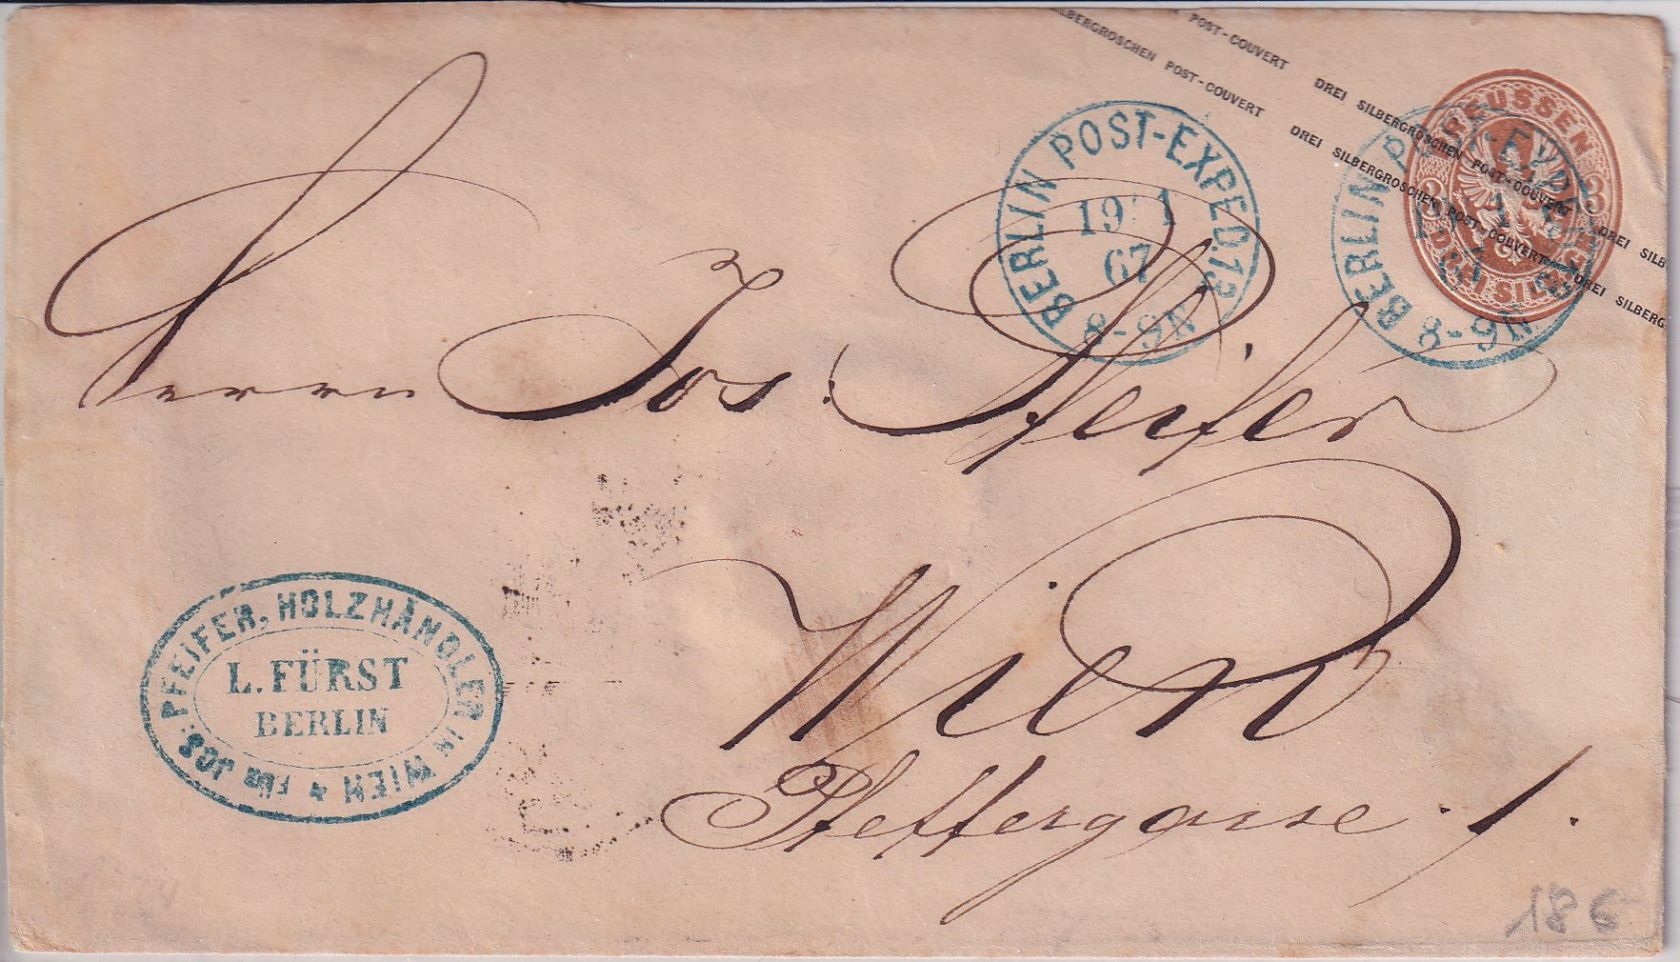 POST-COUVERT DREI SILBERGROSCHEN POST-COUVERT DREI SILB
SILBERGROSCHEN POST-COUVERT DREI SILBERGROSCHEN POST-COUVERT DREI SILBERG
PREUSSEN
3 3
DREI SILB
BERLIN POST-EXPED.13
19 1
67
8-9N
BERLIN POST-EXPED.13
8-9N
Herrn Jos: Pfeifer
Wien
Pfeffergasse 1.
FÜR JOS: PFEIFER, HOLZHÄNDLER IN WIEN
L. FÜRST
BERLIN
186